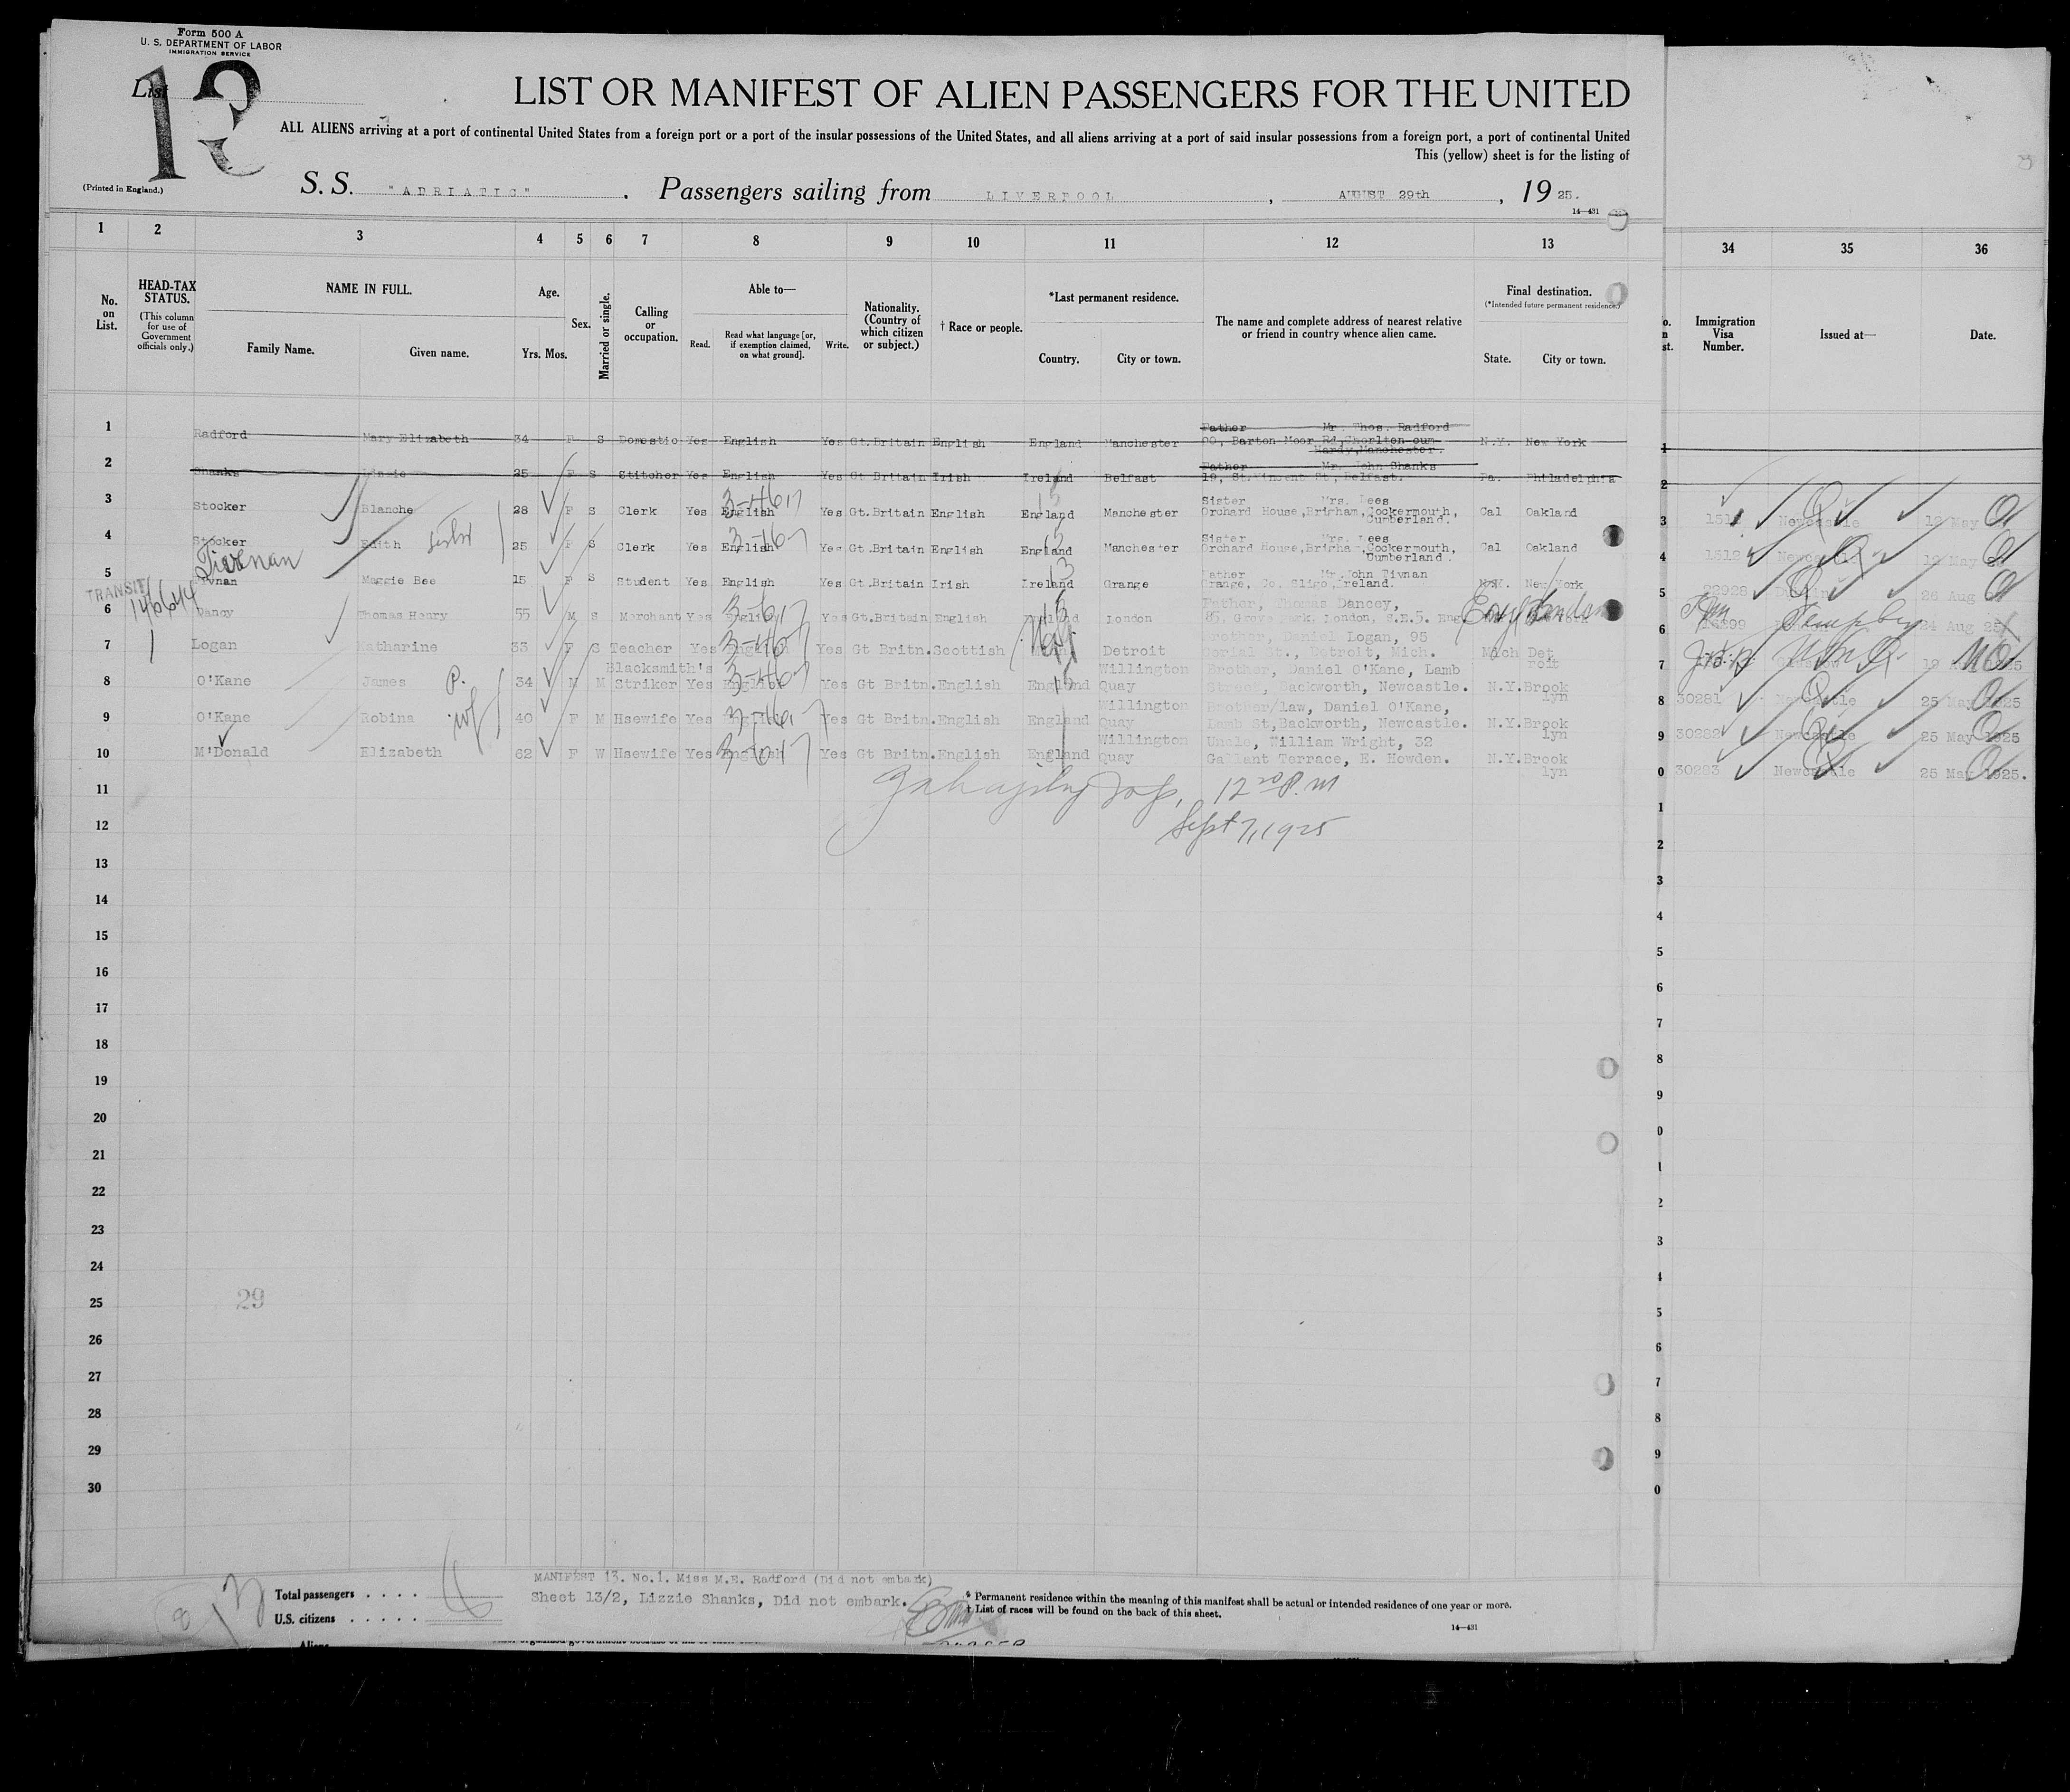 Form 500 A
U. S. DEPARTMENT OF LABOR
IMMIGRATION SERVICE
List 13
LIST OR MANIFEST OF ALIEN PASSENGERS FOR THE UNITED
ALL ALIENS arriving at a port of continental United States from a foreign port or a port of the insular possessions of the United States, and all aliens arriving at a port of said insular possessions from a foreign port, a port of continental United
This (yellow) sheet is for the listing of
(Printed in England.)
S. S. "ADRIATIC" . Passengers sailing from LIVERPOOL , AUGUST 29th , 19 25.
14—431
1 2 3 4 5 6 7 8 9 10 11 12 13 34 35 36
No. on List.
HEAD-TAX STATUS.
(This column for use of Government officials only.)
NAME IN FULL.
Family Name. Given name.
Age.
Yrs. Mos.
Sex.
Married or single.
Calling or occupation.
Able to—
Read. Read what language [or, if exemption claimed, on what ground]. Write.
Nationality. (Country of which citizen or subject.)
† Race or people.
*Last permanent residence.
Country. City or town.
The name and complete address of nearest relative or friend in country whence alien came.
Final destination.
(*Intended future permanent residence.)
State. City or town.
Immigration Visa Number.
Issued at—
Date.
Father Mr. Thos. Radford
1 Radford Mary Elizabeth 34 F S Domestic Yes English Yes Gt.Britain English England Manchester Barton Moor Rd, Chorlton-cum- N.Y. New York
Hardy, Manchester.
Father Mr. John Shanks
2 Shanks Lizzie 25 F S Stitcher Yes English Yes Gt Britain Irish Ireland Belfast 19, St. Vincent St, Belfast. Pa. Philadelphia
Sister Mrs. Lees
3 Stocker Blanche 28 F S Clerk Yes English Yes Gt.Britain English England Manchester Orchard House, Brigham, Cockermouth, Cal Oakland Newcastle 12 May
Cumberland.
Sister Mrs. Lees
4 Stocker Edith sister 25 F S Clerk Yes English Yes Gt.Britain English England Manchester Orchard House, Brigham, Cockermouth, Cal Oakland 1512 Newcastle 12 May
Cumberland.
Tivenan
Father Mr. John Tivnan
5 Tivnan Maggie Bee 15 F S Student Yes English Yes Gt.Britain Irish Ireland Grange Grange, Co. Sligo, Ireland. N.Y. New York 22928 Dublin 26 Aug
TRANSIT
Father, Thomas Dancey,
6 Dancy Thomas Henry 55 M S Merchant Yes English Yes Gt.Britain English England London 85, Grove Park, London, S.E.5. Eng. England 24 Aug 25
Brother, Daniel Logan, 95
7 Logan Katharine 33 F S Teacher Yes English Yes Gt Britn. Scottish Detroit St., Detroit, Mich. Mich Detroit
8 O'Kane James 34 M M Blacksmith's Striker Yes English Yes Gt Britn. English England Willington Quay Brother, Daniel O'Kane, Lamb
Street, Backworth, Newcastle. N.Y. Brooklyn 30281 Newcastle 25 May 1925
9 O'Kane Robina wf 40 F M Hsewife Yes English Yes Gt Britn. English England Willington Quay Brother/law, Daniel O'Kane,
Lamb St, Backworth, Newcastle. N.Y. Brooklyn 30282 Newcastle 25 May 1925
10 M'Donald Elizabeth 62 F W Hsewife Yes English Yes Gt Britn. English England Willington Quay Uncle, William Wright, 32
Gallant Terrace, E. Howden. N.Y. Brooklyn 30283 Newcastle 25 May 1925.
11
12 Sept 7, 1925
13
14
15
16
17
18
19
20
21
22
23
24
25
29
26
27
28
29
30
MANIFEST 13. No.1. Miss M.E. Radford (Did not embark)
Sheet 13/2, Lizzie Shanks, Did not embark.
Total passengers . . . .
U.S. citizens . . . . .
Aliens
* Permanent residence within the meaning of this manifest shall be actual or intended residence of one year or more.
† List of races will be found on the back of this sheet.
14—431